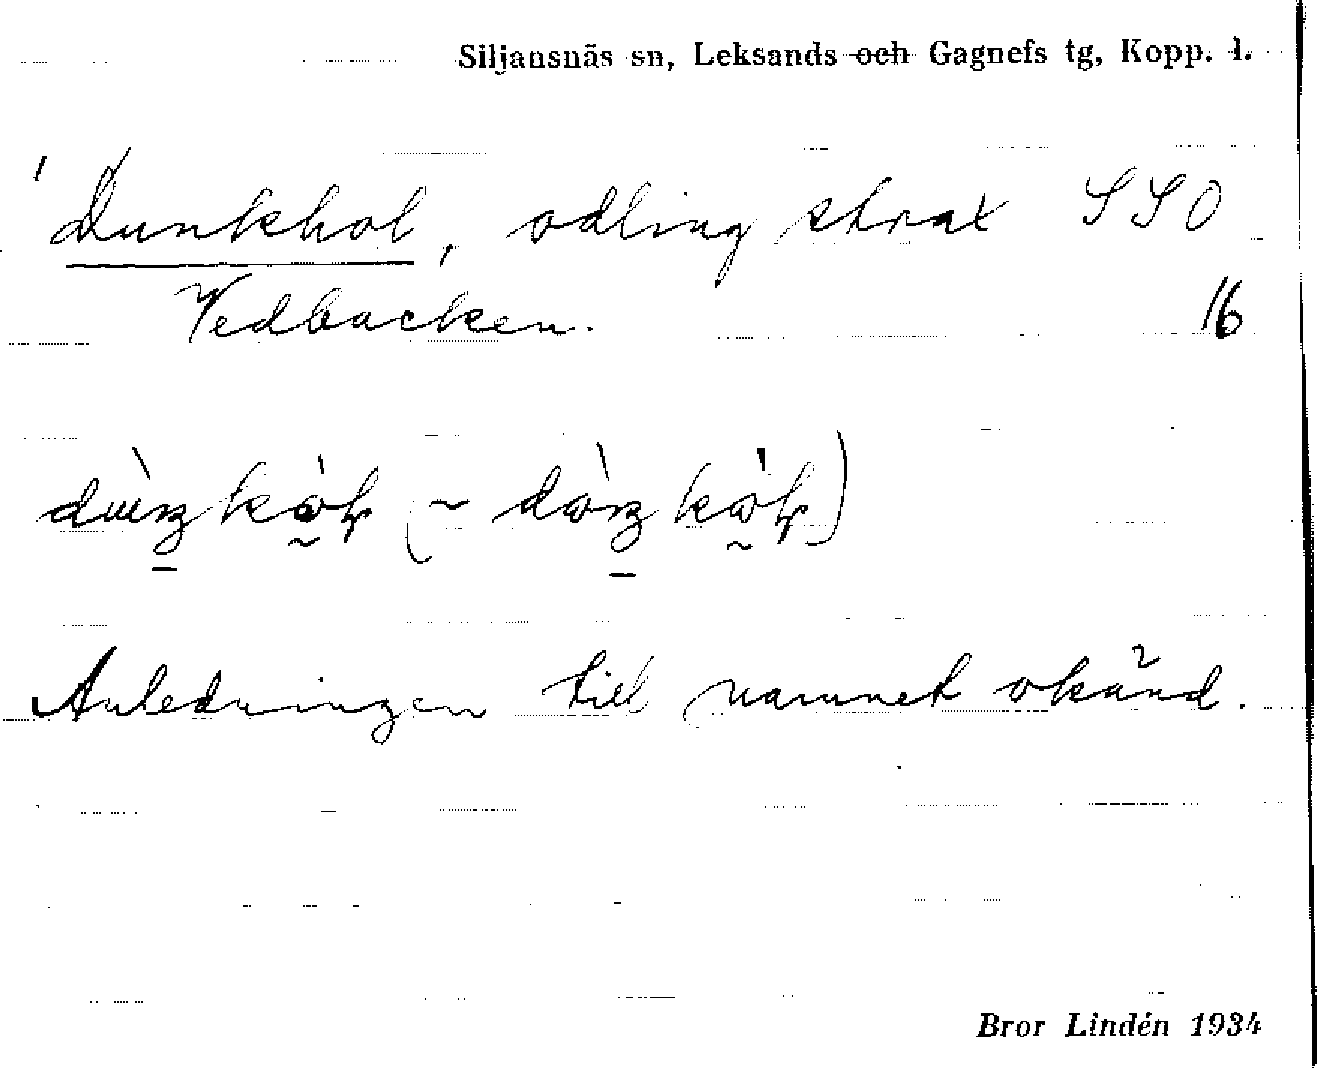 Siljansnäs sn, Leksands och Gagnefs tg, Kopp. l.
Dunkhol, odling strax SSO
Vedbacken. 16
Anledningen till namnet okänd.
Bror Lindén 1934